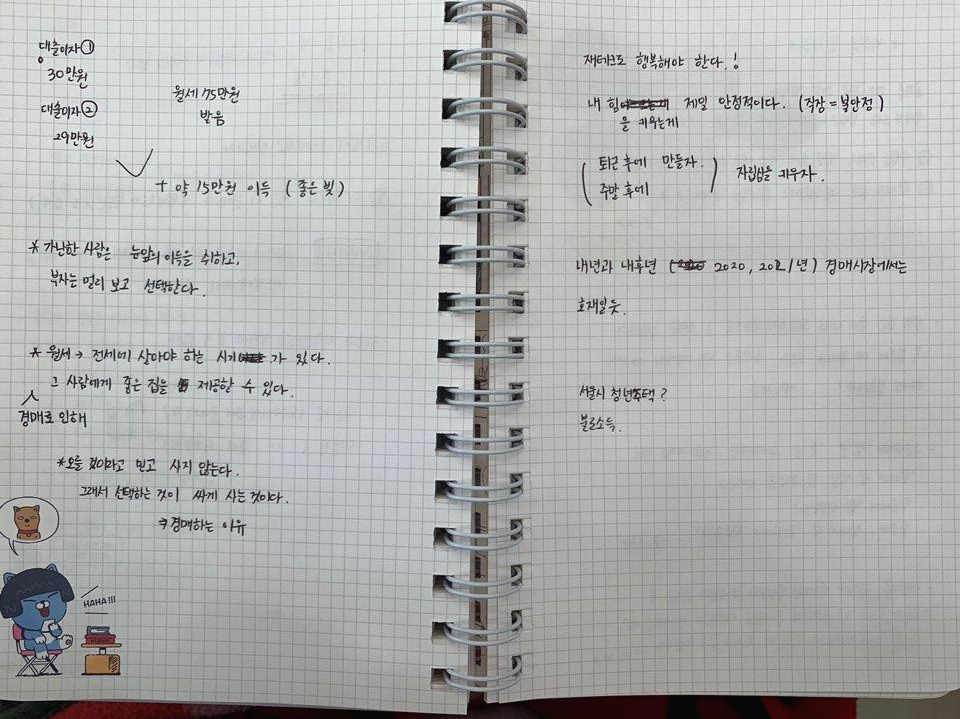 대출이자①
30만원
대출이자②
29만원
월세 75만원
받음
+ 약 15만원 이득 (좋은 빚)
* 가난한 사람은 눈앞의 이득을 취하고,
부자는 멀리 보고 선택한다.
* 월세 → 전세에 살아야 하는 시기가 있다.
그 사람에게 좋은 집을 제공할 수 있다.
경매로 인해
*오를 것이라고 믿고 사지 않는다.
그래서 선택하는 것이 싸게 사는 것이다.
→경매하는 이유
HAHA!!!
재테크도 행복해야 한다.!
내 힘을 키우는게 제일 안정적이다. (직장 = 불안정)
퇴근 후에 만들자.
주말 후에
자립심을 키우자.
내년과 내후년 (2020, 2021년) 경매시장에서는
호재일듯.
서울시 청년주택?
불로소득.